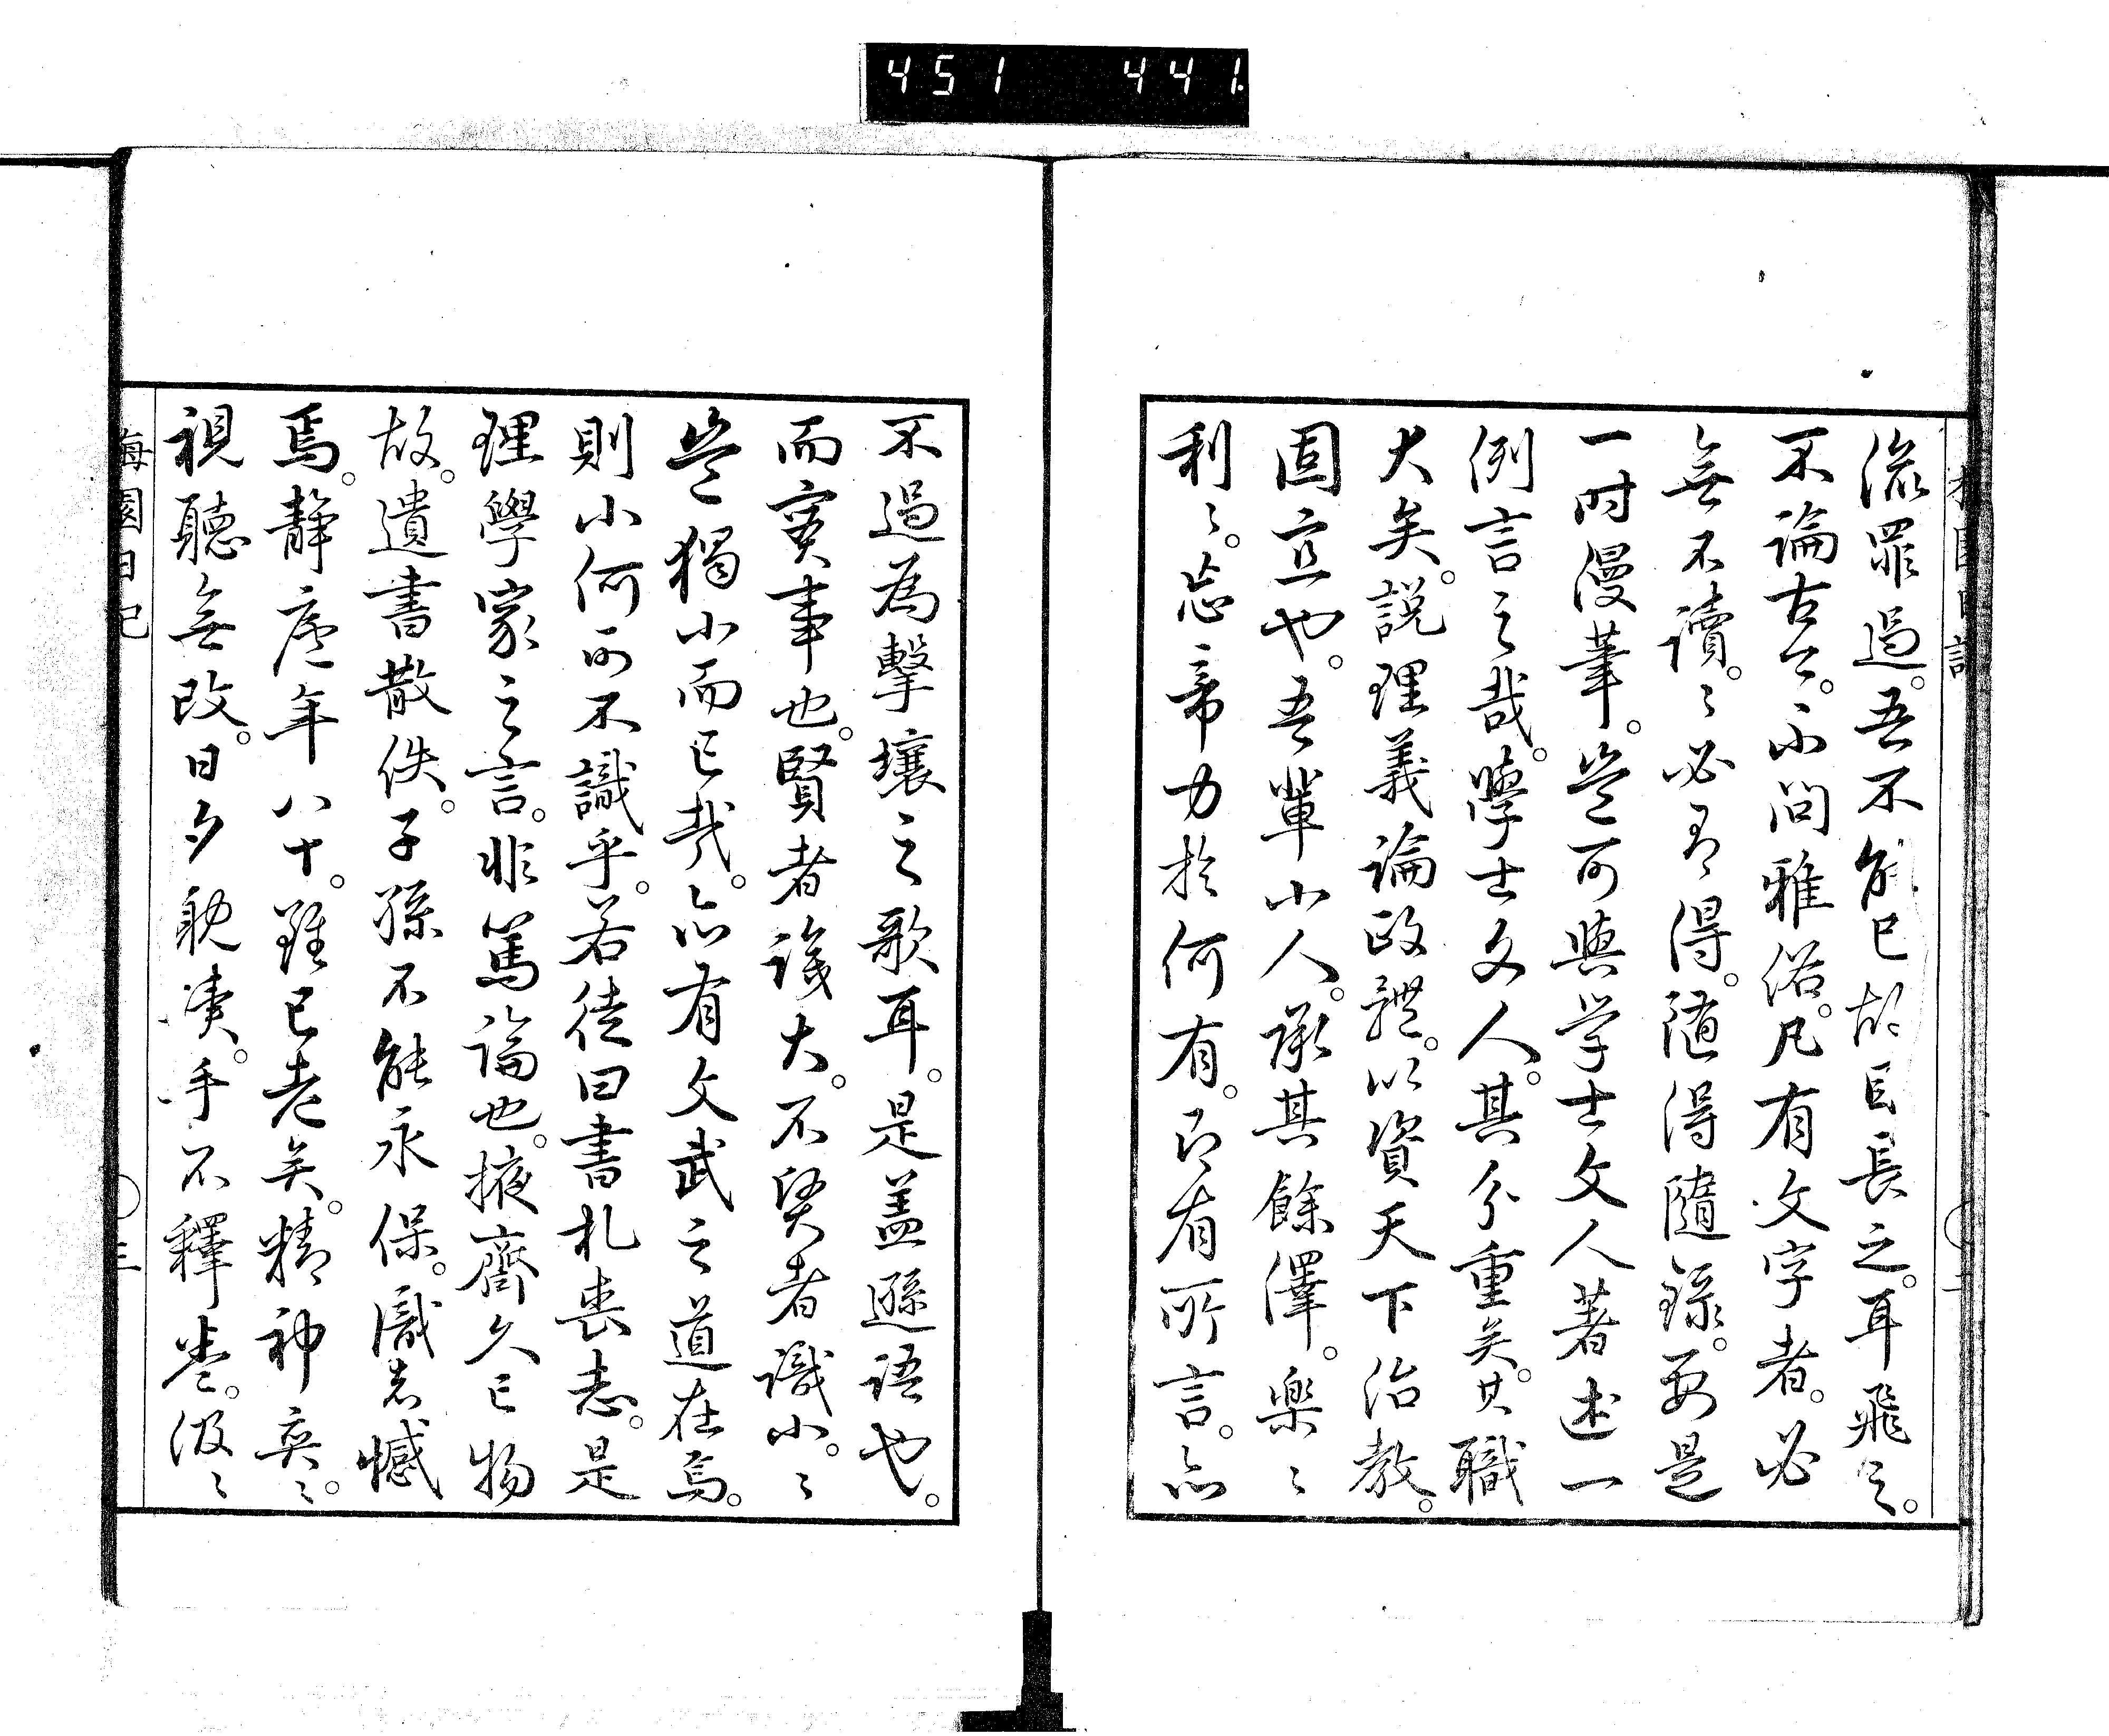 451 441
流罪過。吾不能已故且長之。耳飛之。
不論古今。不問雅俗。凡有文字者。必
無不讀。〻必有得。随得隨録。要是
一時漫筆。豈可與学士文人著述一
例言之哉。學士文人。其分重矣。其職
大矣。説理義論政體。以資天下治教。
固宜也。吾輩小人。承其餘澤。楽〻
利〻。忘帝力於何有。即有所言。亦
不過為擊壤之歌耳。是盖遜語也。
而実事也。賢者識大。不賢者識小。〻
豈獨小而已哉。亦有文武之道在焉。
則小何可不識乎。若徒曰書札喪志。是
理學家之言。非篤論也。掖齋久已物
故。遺書散佚。子孫不能永保。識者憾
焉。静廬年八十。雖已老矣。精神奕〻。
視聽無改。日夕耽讀。手不釋巻。汲〻
梅園日記
三